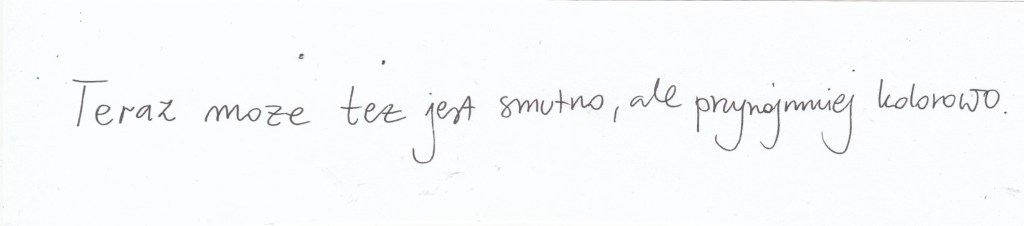 Teraz może też jest smutno, ale przynajmniej kolorowo.